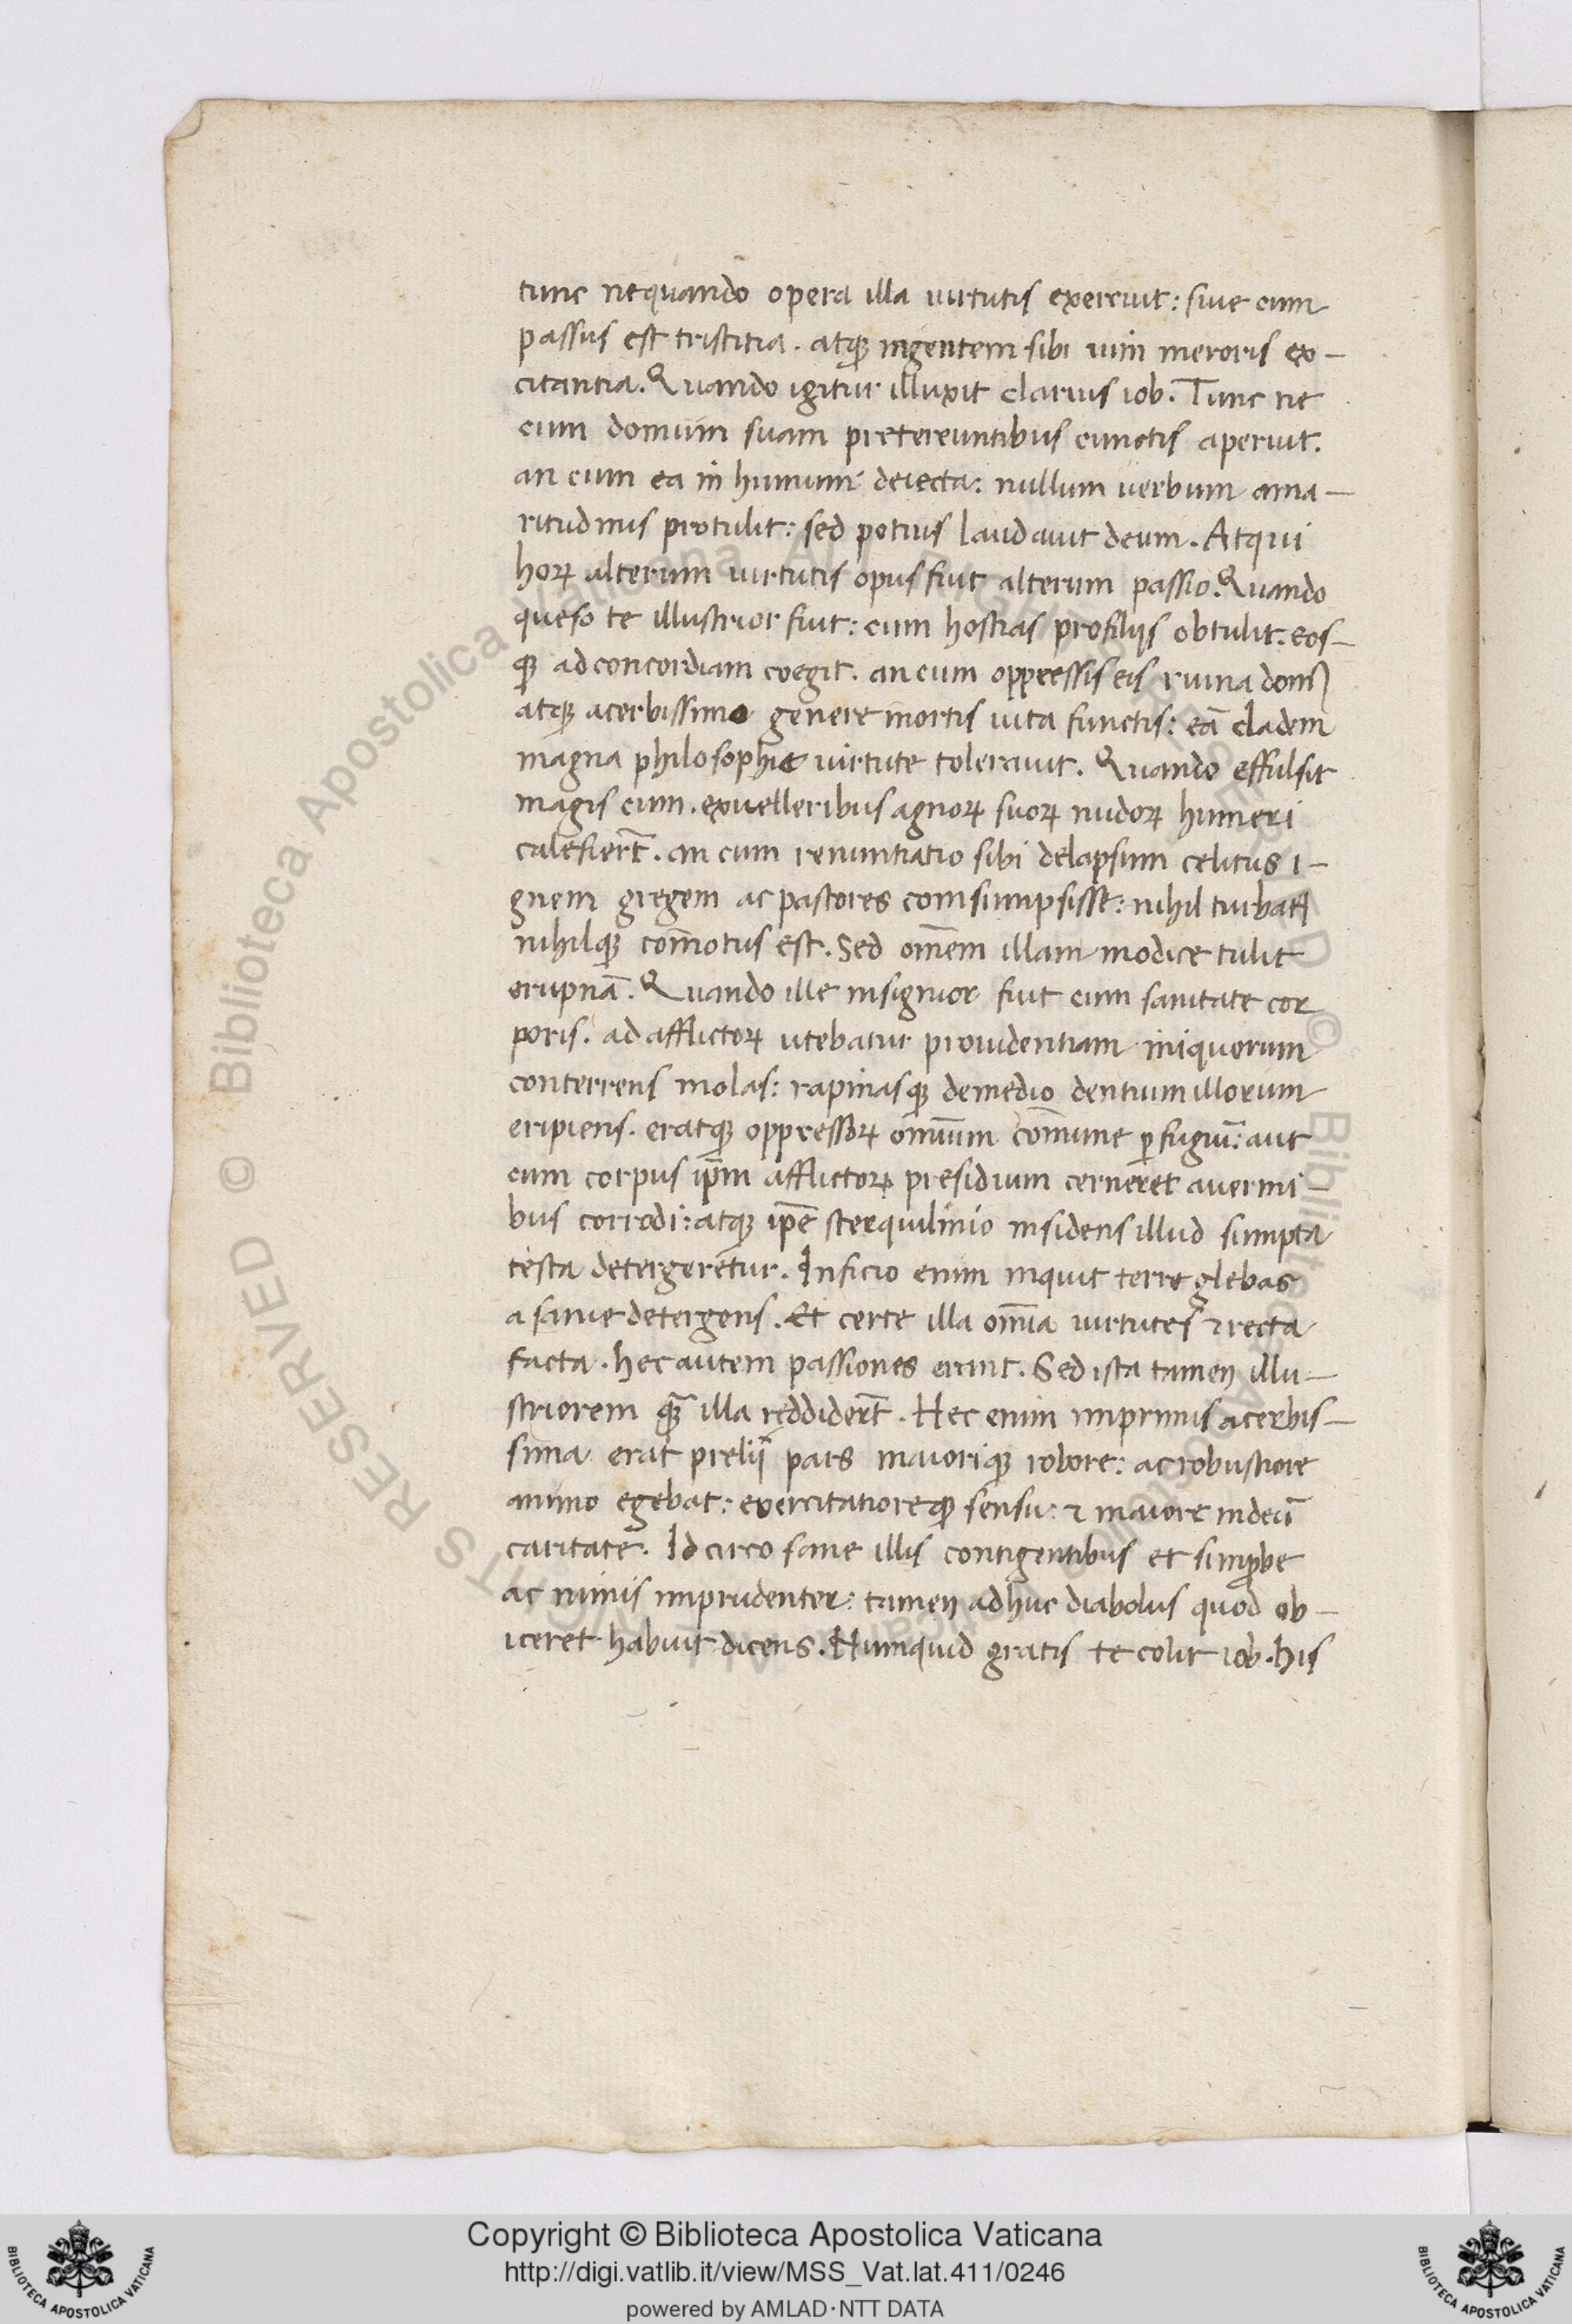 tunc nequando opera illa uirtutis exercuit: siue cum
passus est tristitia. atqꝫ ingentem sibi uim meroris ex-
citantia. Quando igitur illuxit clarius iob. Tunc ne
cum domum suam pretereuntibus cunctis aperuit.
an cum ea in humum deiecta: nullum uerbum ama-
ritudinis protulit: sed potius laudauit deum. Atqui
hoꝝ alterum uirtutis opus fuit alterum passio. Quando
queso te illustrior fuit: cum hostias profilijs obtulit: eos-
qꝫ adconcordiam coegit. an cum oppressis eis ruina domꝰ
atqꝫ acerbissimo genere mortis uita functis: eā cladem
magna philosophie uirtute tolerauit. Quando effulsit
magis cum. exuelleribus agnoꝝ suoꝝ nudoꝝ humeri
calefierēt. an cum renuntiatio sibi delapsum celitus i-
gnem gregem ac pastores comsumpsisse: nihil turbatꝰ
nihilqꝫ com̄otus est. Sed om̄em illam modice tulit
erupnā. Quando ille insignior fuit cum sanitate cor
poris. ad afflictoꝝ utebatur prouidentiam iniquorum
conterrens molas: rapinasqꝫ demedio dentium illorum
eripiens. eratqꝫ oppressoꝝ om̄ium com̄une ꝑfugiū: aut
cum corpus ip̄m afflictoꝝ presidium cerneret auermi-
bus corrodi: atqꝫ ip̄e sterquilinio insidens illud sumpta
testa detergeretur. Inficio enim inquit terre glebas
a sanie detergens. Et certe illa om̄ia uirtutes ⁊ recta
facta. hec autem passiones erant. Sed ista tamen illu-
striorem qꝫ̄ illa reddidert̄. Hec enim imprimis acerbis-
sima erat prelij pars maioriqꝫ robore: ac robustiore
animo egebat: exercitatioreqꝫ sensu: ⁊ maiore indeū
caritate. Id circo sane illis contigentibus et si improbe
ac nimis imprudenter: tamen adhuc diabolus quod ob-
iceret habuit dicens. Numquid gratis te colit iob. his
Copyright © Biblioteca Apostolica Vaticana
http://digi.vatlib.it/view/MSS_Vat.lat.411/0246
powered by AMLAD·NTT DATA